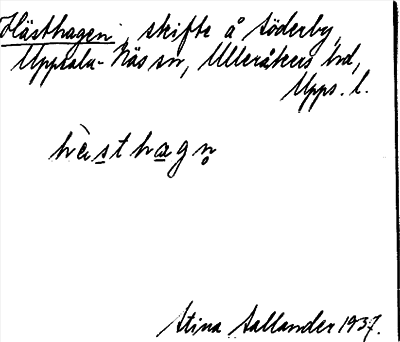 Hästhagen, skifte å Söderby,
Uppsala-Näs sn, Ulleråkers hd,
Upps. l.
hè̀sthagn̥
Stina Sallander 1937.